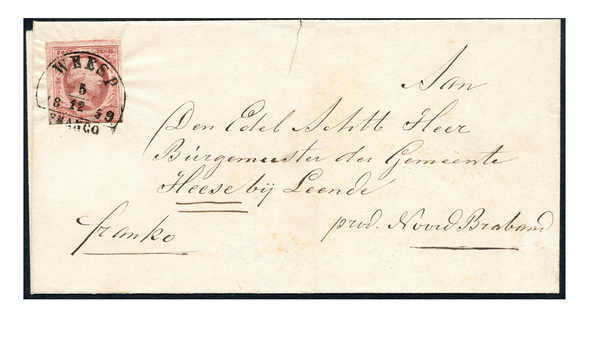 WEESP
5
18 12 49
FRANCO
Aan
Den Edel Achtb Heer
Burgemeester der Gemeente
Heese bij Leende
prov. Noord Braband
franko